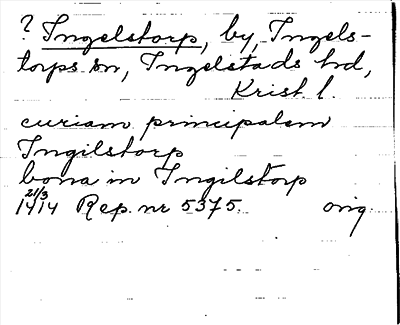 ? Ingelstorp, by, Ingels-
torps sn, Ingelstads hd,
Krist. l.
curiam principalem
Ingilstorp
bona in Ingilstorp
21/3
1414 Rep. nr 5375. orig.